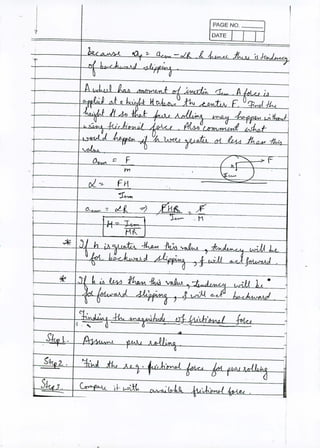 PAGE NO.
DATE
because ap = acm - αR & hence there is tendency
of backward slipping.
A wheel has moment of inertia Icm. A force is
applied at a height H above the center F. Find the
height H so that pure rolling may happen without
using frictional force. Also comment what
would happen if h were greater or less than this
value.
acm = F
m
F
Icm
α = FH
Icm
acm = αR ⇒ FHR = F
Icm M
H = Icm
MR
* If h is greater than this value, tendency will be
for backward slipping, f will act forward.
* If h is less than this value, tendency will be
for forward slipping, f will act backward
Finding the magnitude of frictional force
Step 1. Assume pure rolling
Step 2. Find the req. frictional force for pure rolling
Step 3. Compare it with available frictional force.